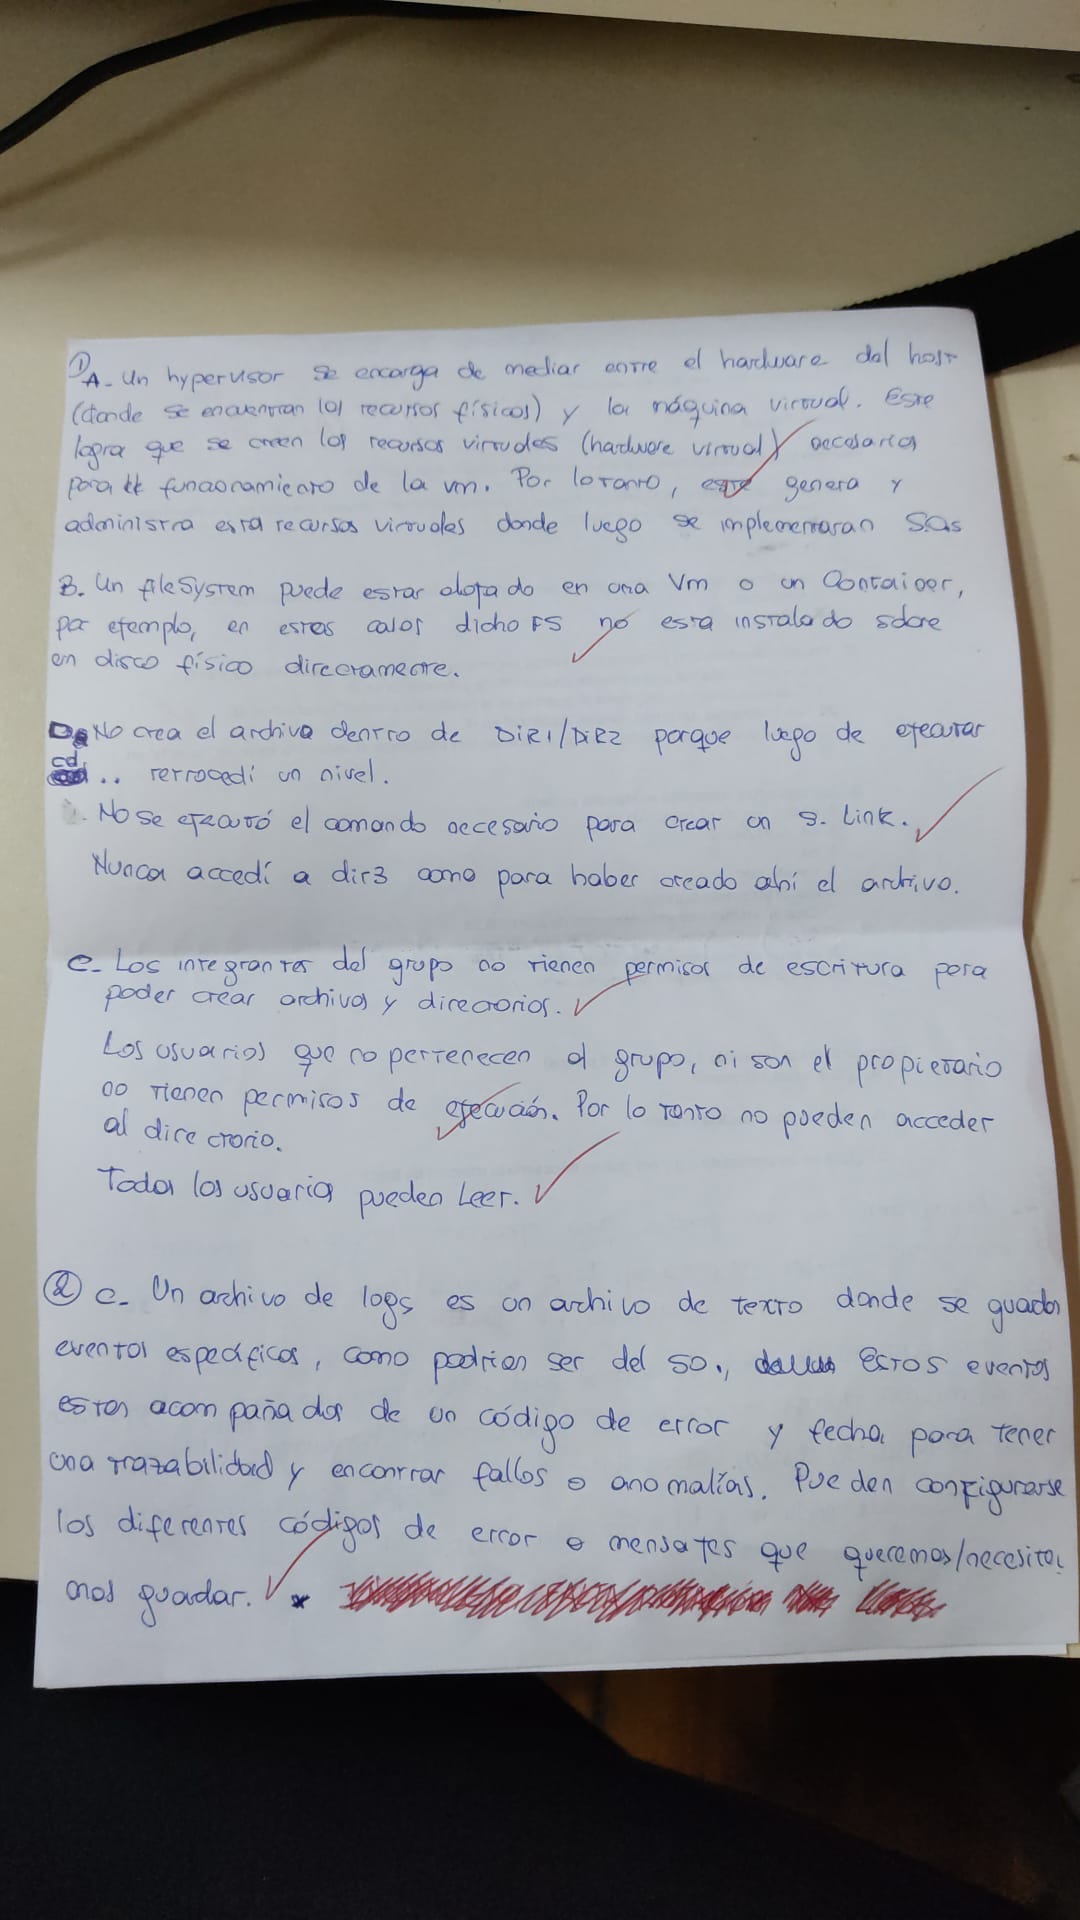 ① A- Un hypervisor se encarga de mediar entre el hardware del host
(donde se encuentran los recursos físicos) y la máquina virtual. Este
logra que se creen los recursos virtuales (hardware virtual) necesarios
para el funcionamiento de la vm. Por lo tanto, este genera y
administra esta recursos virtuales donde luego se implementaran S.Os
B. Un fileSystem puede estar alojado en una Vm o un Container,
por ejemplo, en estos casos dicho FS no esta instalado sobre
en disco físico directamente.
D. No crea el archivo dentro de DIR1/DIR2 porque luego de ejecutar
cd .. retrocedí un nivel.
. No se ejecutó el comando necesario para crear un s. Link.
Nunca accedí a dir3 como para haber creado ahí el archivo.
e- Los integrantes del grupo no tienen permisos de escritura para
poder crear archivos y directorios.
Los usuarios que no pertenecen al grupo, ni son el propietario
no tienen permisos de ejecución. Por lo tanto no pueden acceder
al directorio.
Todos los usuarios pueden Leer.
② c- Un archivo de logs es un archivo de texto donde se guardan
eventos específicos, como podrían ser del so., Estos eventos
estan acompañados de un código de error y fecha, para tener
una trazabilidad y encontrar fallos o anomalías. Pueden configurarse
los diferentes códigos de error o mensajes que queremos/necesita-
mos guardar. *